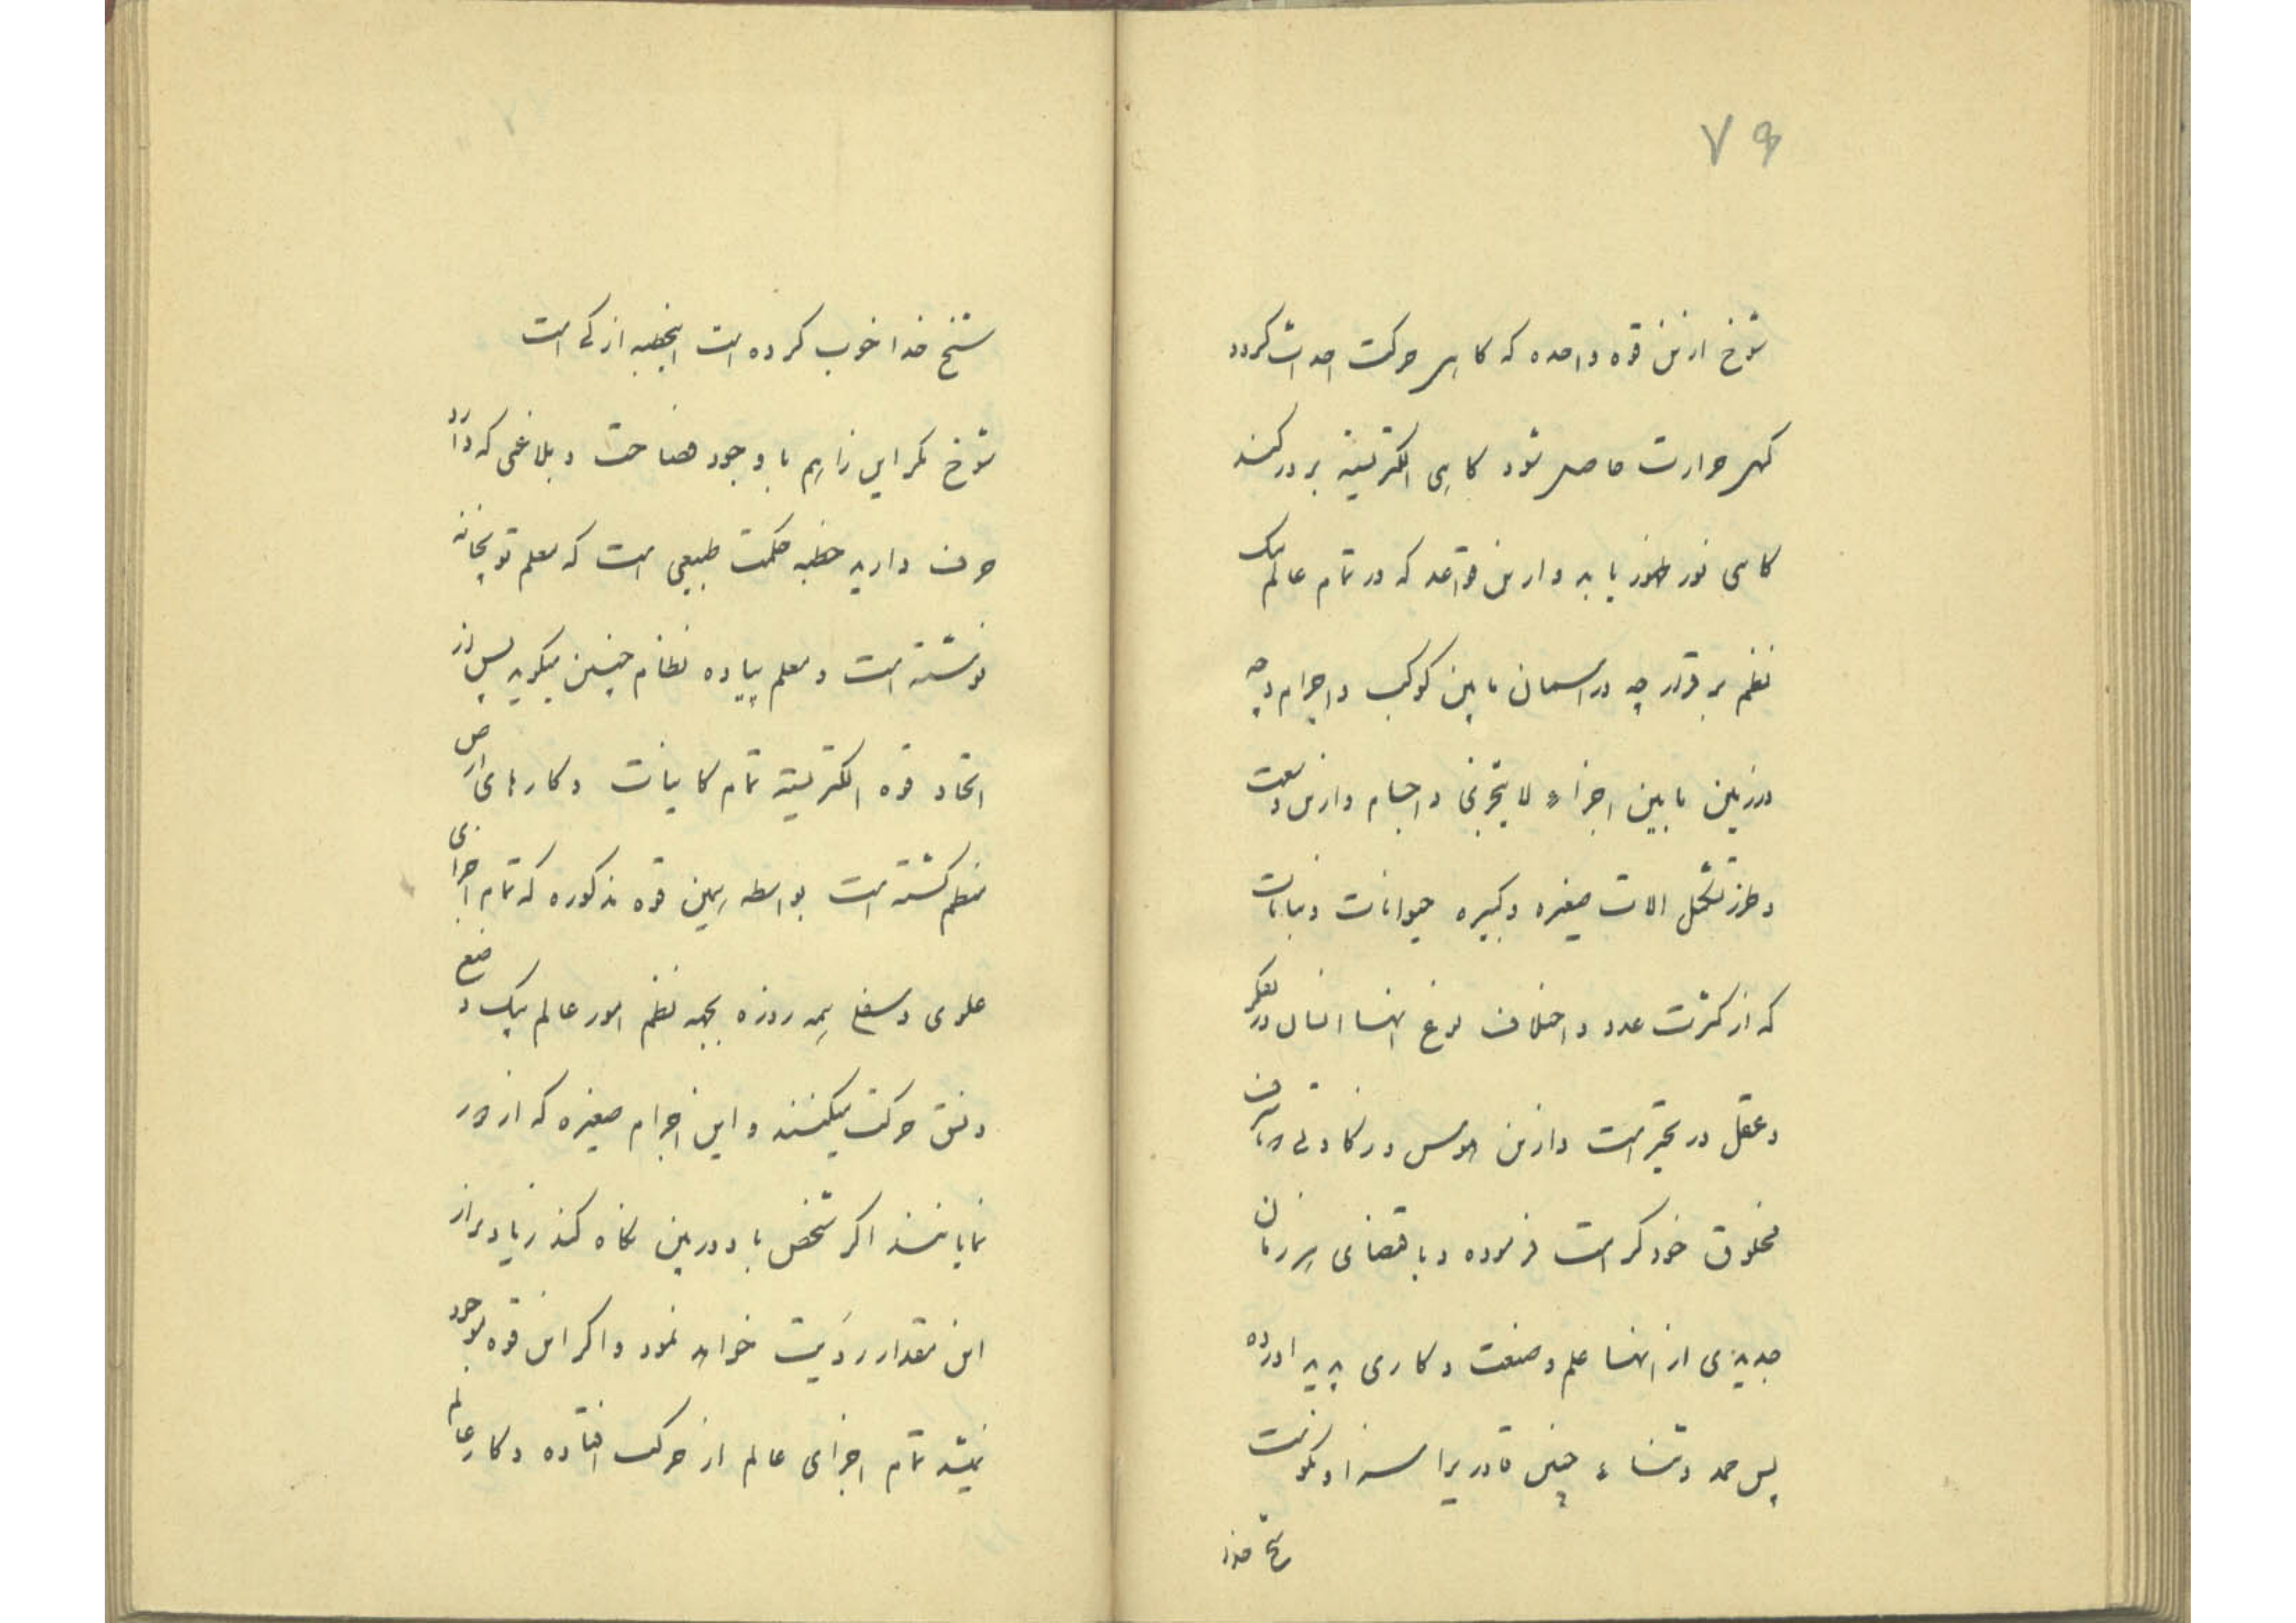 ۷۹
شوخ ازین قوه واحده که گاهی حرکت احداث گردد
گهی حرارت حاصل شود گاهی الکتریسیته بروز کند
گاهی نور ظهور یابد و ازین قواعد که در تمام عالم یک
نظم برقرار چه در آسمان مابین کوکب و اجرام و چه
در زمین مابین اجزاء لا یتجزی و اجسام و ازین وسعت
و طرز تشکل الات صغیره و کبیره حیوانات و نباتات
که از کثرت عدد و اختلاف نوع انها انسان در تفکر
و عقل در تحیر است و ازین هوس و زکاوتی که باشرف
مخلوق خود کرامت فرموده و باقتضای هر زمان
جدیدی از انها علم و صنعت و کاری پدید اورده
پس حمد و ثناء چنین قادریرا سزاوار نکوئیست
شیخ خدا
شیخ خدا خوب کرده است اینخطبه از کی است
شوخ مگر این را هم با وجود فصاحت و بلاغتی که دارد
حرف دارید خطبه حکمت طبیعی است که معلم توپخانه
نوشته است و معلم پیاده نظام چنین میگوید پس از
اتحاد قوه الکتریسیته تمام کاینات و کارهای ارض
منظم گشته است بواسطه همین قوه مذکوره که تمام اجزای
علوی و سفلی همه روزه بجهه نظم امور عالم بیک وضع
و نسق حرکت میکنند و این اجرام صغیره که از دور
نمایانند اگر شخص با دوربین نگاه کند زیادتر از
این مقدار رؤیت خواهد نمود و اگر این قوه موجود
نمیشد تمام اجزای عالم از حرکت افتاده و کار عالم